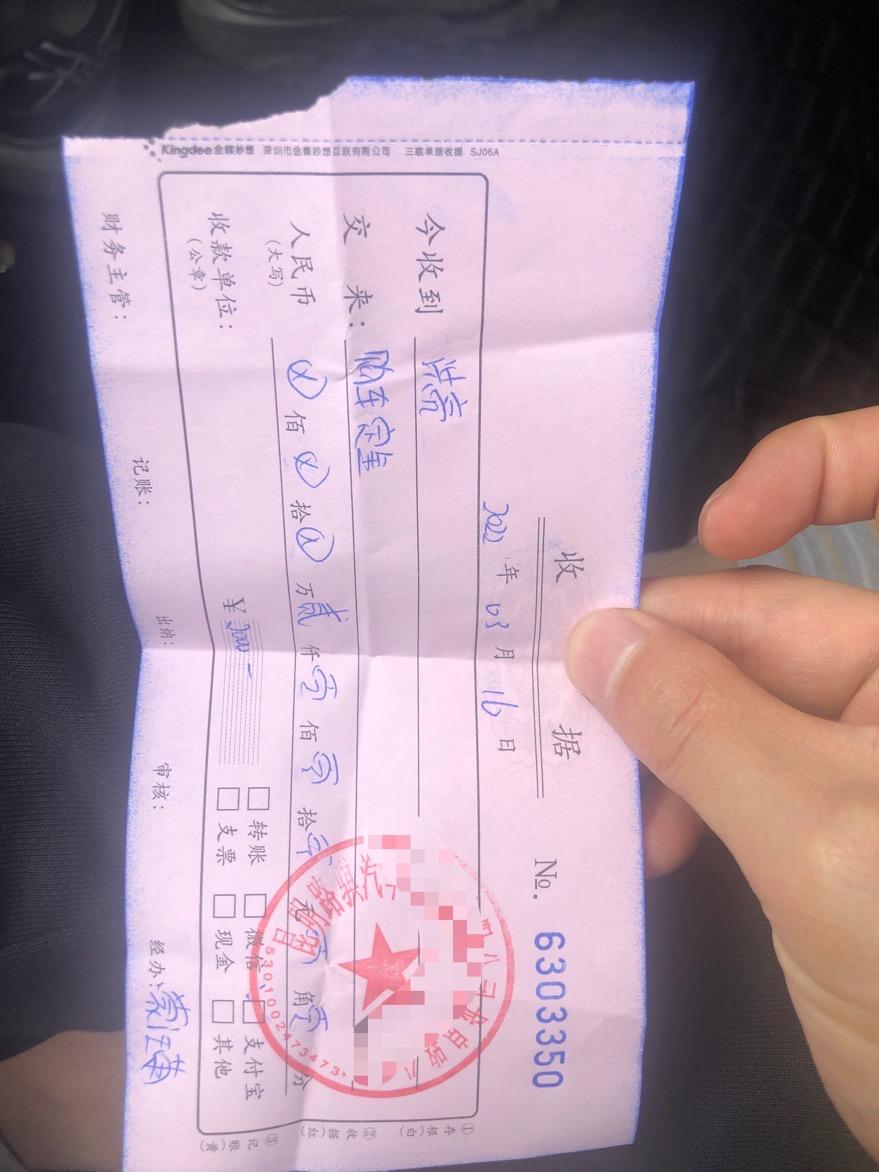 Kingdee金蝶妙想 深圳市金蝶妙想互联有限公司 三联单据收据 SJ06A
收 据
No. 6303350
年 03 月 16 日
今收到 洪亮
交 来: 购车定金
人民币 (大写) ⓧ 佰 ⓧ 拾 ⓧ 万 贰 仟 零 佰 零 拾 零 元 零 角 零 分
¥ 2000-
收款单位: (公章)
转账 微信 支付宝
支票 现金 其他
财务主管: 记账: 出纳: 审核: 经办:
①存根(白) ②收据(红) ③记账(黄)
5301002473473